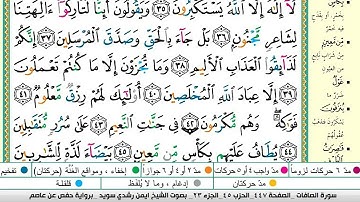 لَآ إِلَٰهَ إِلَّا ٱللَّهُ يَسْتَكْبِرُونَ ٣٥ وَيَقُولُونَ أَئِنَّا لَتَارِكُوٓاْ ءَالِهَتِنَا
لِشَاعِرٖ مَّجْنُونِۭ ٣٦ بَلْ جَآءَ بِٱلْحَقِّ وَصَدَّقَ ٱلْمُرْسَلِينَ ٣٧ إِنَّكُمْ
لَذَآئِقُواْ ٱلْعَذَابِ ٱلْأَلِيمِ ٣٨ وَمَا تُجْزَوْنَ إِلَّا مَا كُنتُمْ تَعْمَلُونَ
٣٩ إِلَّا عِبَادَ ٱللَّهِ ٱلْمُخْلَصِينَ ٤٠ أُوْلَٰٓئِكَ لَهُمْ رِزْقٞ مَّعْلُومٞ ٤١
فَوَٰكِهُ وَهُم مُّكْرَمُونَ ٤٢ فِي جَنَّٰتِ ٱلنَّعِيمِ ٤٣ عَلَىٰ سُرُرٖ مُّتَقَٰبِلِينَ
٤٤ يُطَافُ عَلَيْهِم بِكَأْسٖ مِّن مَّعِينِۭ ٤٥ بَيْضَآءَ لَذَّةٖ لِّلشَّٰرِبِينَ
مدّ ٦ حركات لزوماً مدّ ٢ أو ٤ أو ٦ جوازاً إخفاء، ومواقع الغُنَّة (حركتان) تفخيم
مدّ واجب ٤ أو ٥ حركات مدّ حركتان إدغام، وما لا يُلفَظ قلقلة
سورة الصافات _الصفحة ٤٤٧_ الجزء ٤٥_ الجزء ٢٣ _بصوت الشيخ ايمن رشدي سويد _ برواية حفص عن عاصم